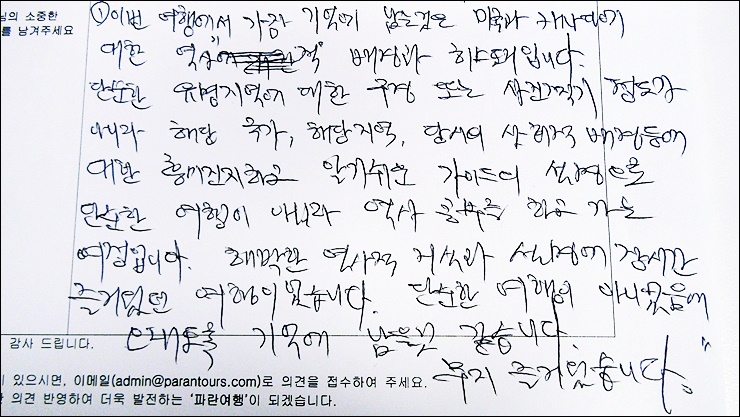 님의 소중한
를 남겨주세요
①이번 여행에서 가장 기억에 남는것은 미국과 캐나다에
대한 역사적 배경과
단순한 유명지역에 대한 구경 또는 사진찍기 정도가
아니라 해당 국가, 해당지역, 당시의 사회적 배경등에
대한 흥미진진하고 알기쉬운 가이드의 설명으로
단순한 여행이 아니라 역사 공부를 하고 가는
여정입니다. 해박한 역사적 지식과 설명에 장시간
즐거웠던 여행이었습니다. 단순한 여행이 아니었음에
오래토록 기억에 남을것 같습니다.
무지 즐거웠습니다."
감사 드립니다.
이 있으시면, 이메일(admin@parantours.com)로 의견을 접수하여 주세요.
한 의견 반영하여 더욱 발전하는 '파란여행'이 되겠습니다.